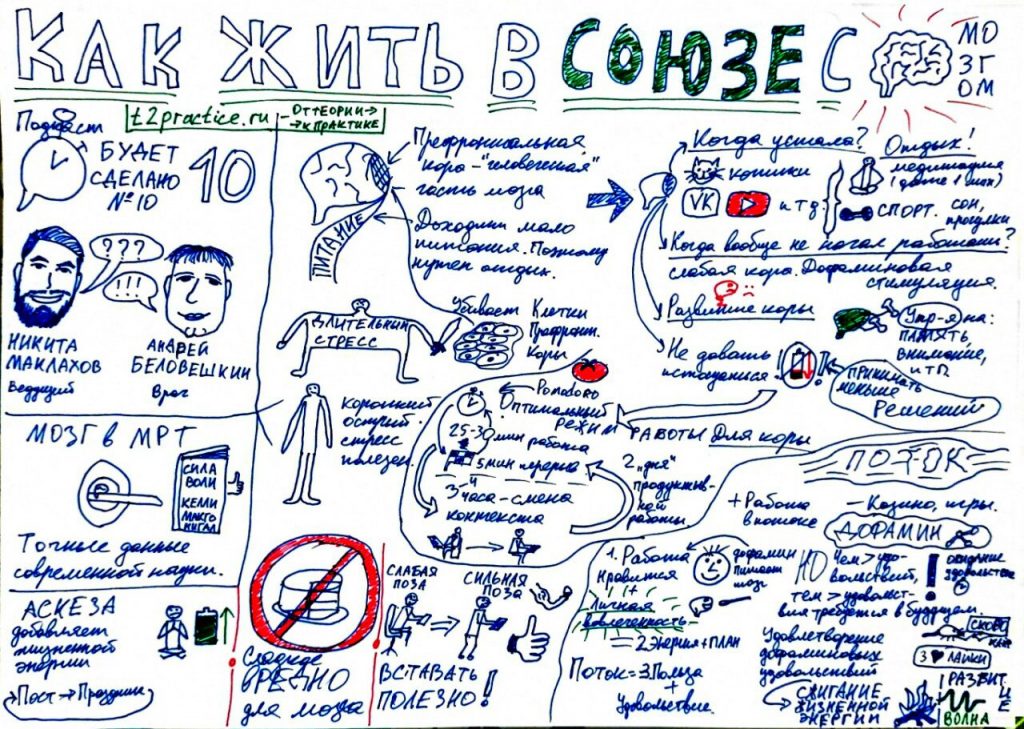 КАК ЖИТЬ В СОЮЗЕ С
МО
ЗГ
ОМ
Подкаст
t2practice.ru
ОТ ТЕОРИИ→
→К ПРАКТИКЕ
БУДЕТ
СДЕЛАНО
№10
10
???
!!!
НИКИТА
МАКЛАХОВ
Ведущий
АНДРЕЙ
БЕЛОВЕШКИН
Врач
МОЗГ В МРТ
СИЛА
ВОЛИ
КЕЛЛИ
МАКГО
НИГАЛ
Точные данные
современной науки.
АСКЕЗА
добавляет
жизненной
энергии
→Пост→Праздник
Префронтальная
кора - "человеческая"
часть мозга
ПИТАНИЕ
Доходит мало
питания. Поэтому
нужен отдых.
ДЛИТЕЛЬНЫЙ
СТРЕСС
Убивает Клетки
Префронт.
Коры
Короткий
острый
стресс
полезен.
Pomodoro
Оптимальный
режим
РАБОТЫ Для коры
25-30 мин работа
5 мин перерыв.
3-4 часа - смена
контекста
2 "дня"
продуктив-
ной
работы
Сладкое
ВРЕДНО
для мозга
СЛАБАЯ
ПОЗА
СИЛЬНАЯ
ПОЗА
ВСТАВАТЬ
ПОЛЕЗНО!
Когда устала?
котики
VK
и т.д.
Отдых!
медитация
(даже 1 мин)
СПОРТ.
сон,
прогулки
Когда вообще не начал работать?
слабая кора. Дофаминовая
стимуляция.
Развитие коры
Упр-я на:
ПАМЯТЬ,
внимание,
и т.п.
Не давать
истощаться.
ПРИНИМАТЬ
МЕНЬШЕ
Решений
ПОТОК
+ Работа
в потоке
- Казино, игры.
ДОФАМИН
1. Работа
нравится
+
Личная
вовлеченность
дофамин
питает
мозг
= 2 Энергия + ПЛАН
Поток = 3 Польза
+
Удовольствие.
НО
Чем > удо-
вольствий,
тем > удовольст-
вия требуется в будущем.
!
ожидание
удовольствия
Удовлетворение
дофаминовых
удовольствий
3 ♥ ЛАЙКИ
СЖИГАНИЕ
ЖИЗНЕННОЙ
ЭНЕРГИИ
РАЗВИТИЕ
ВОЛНА